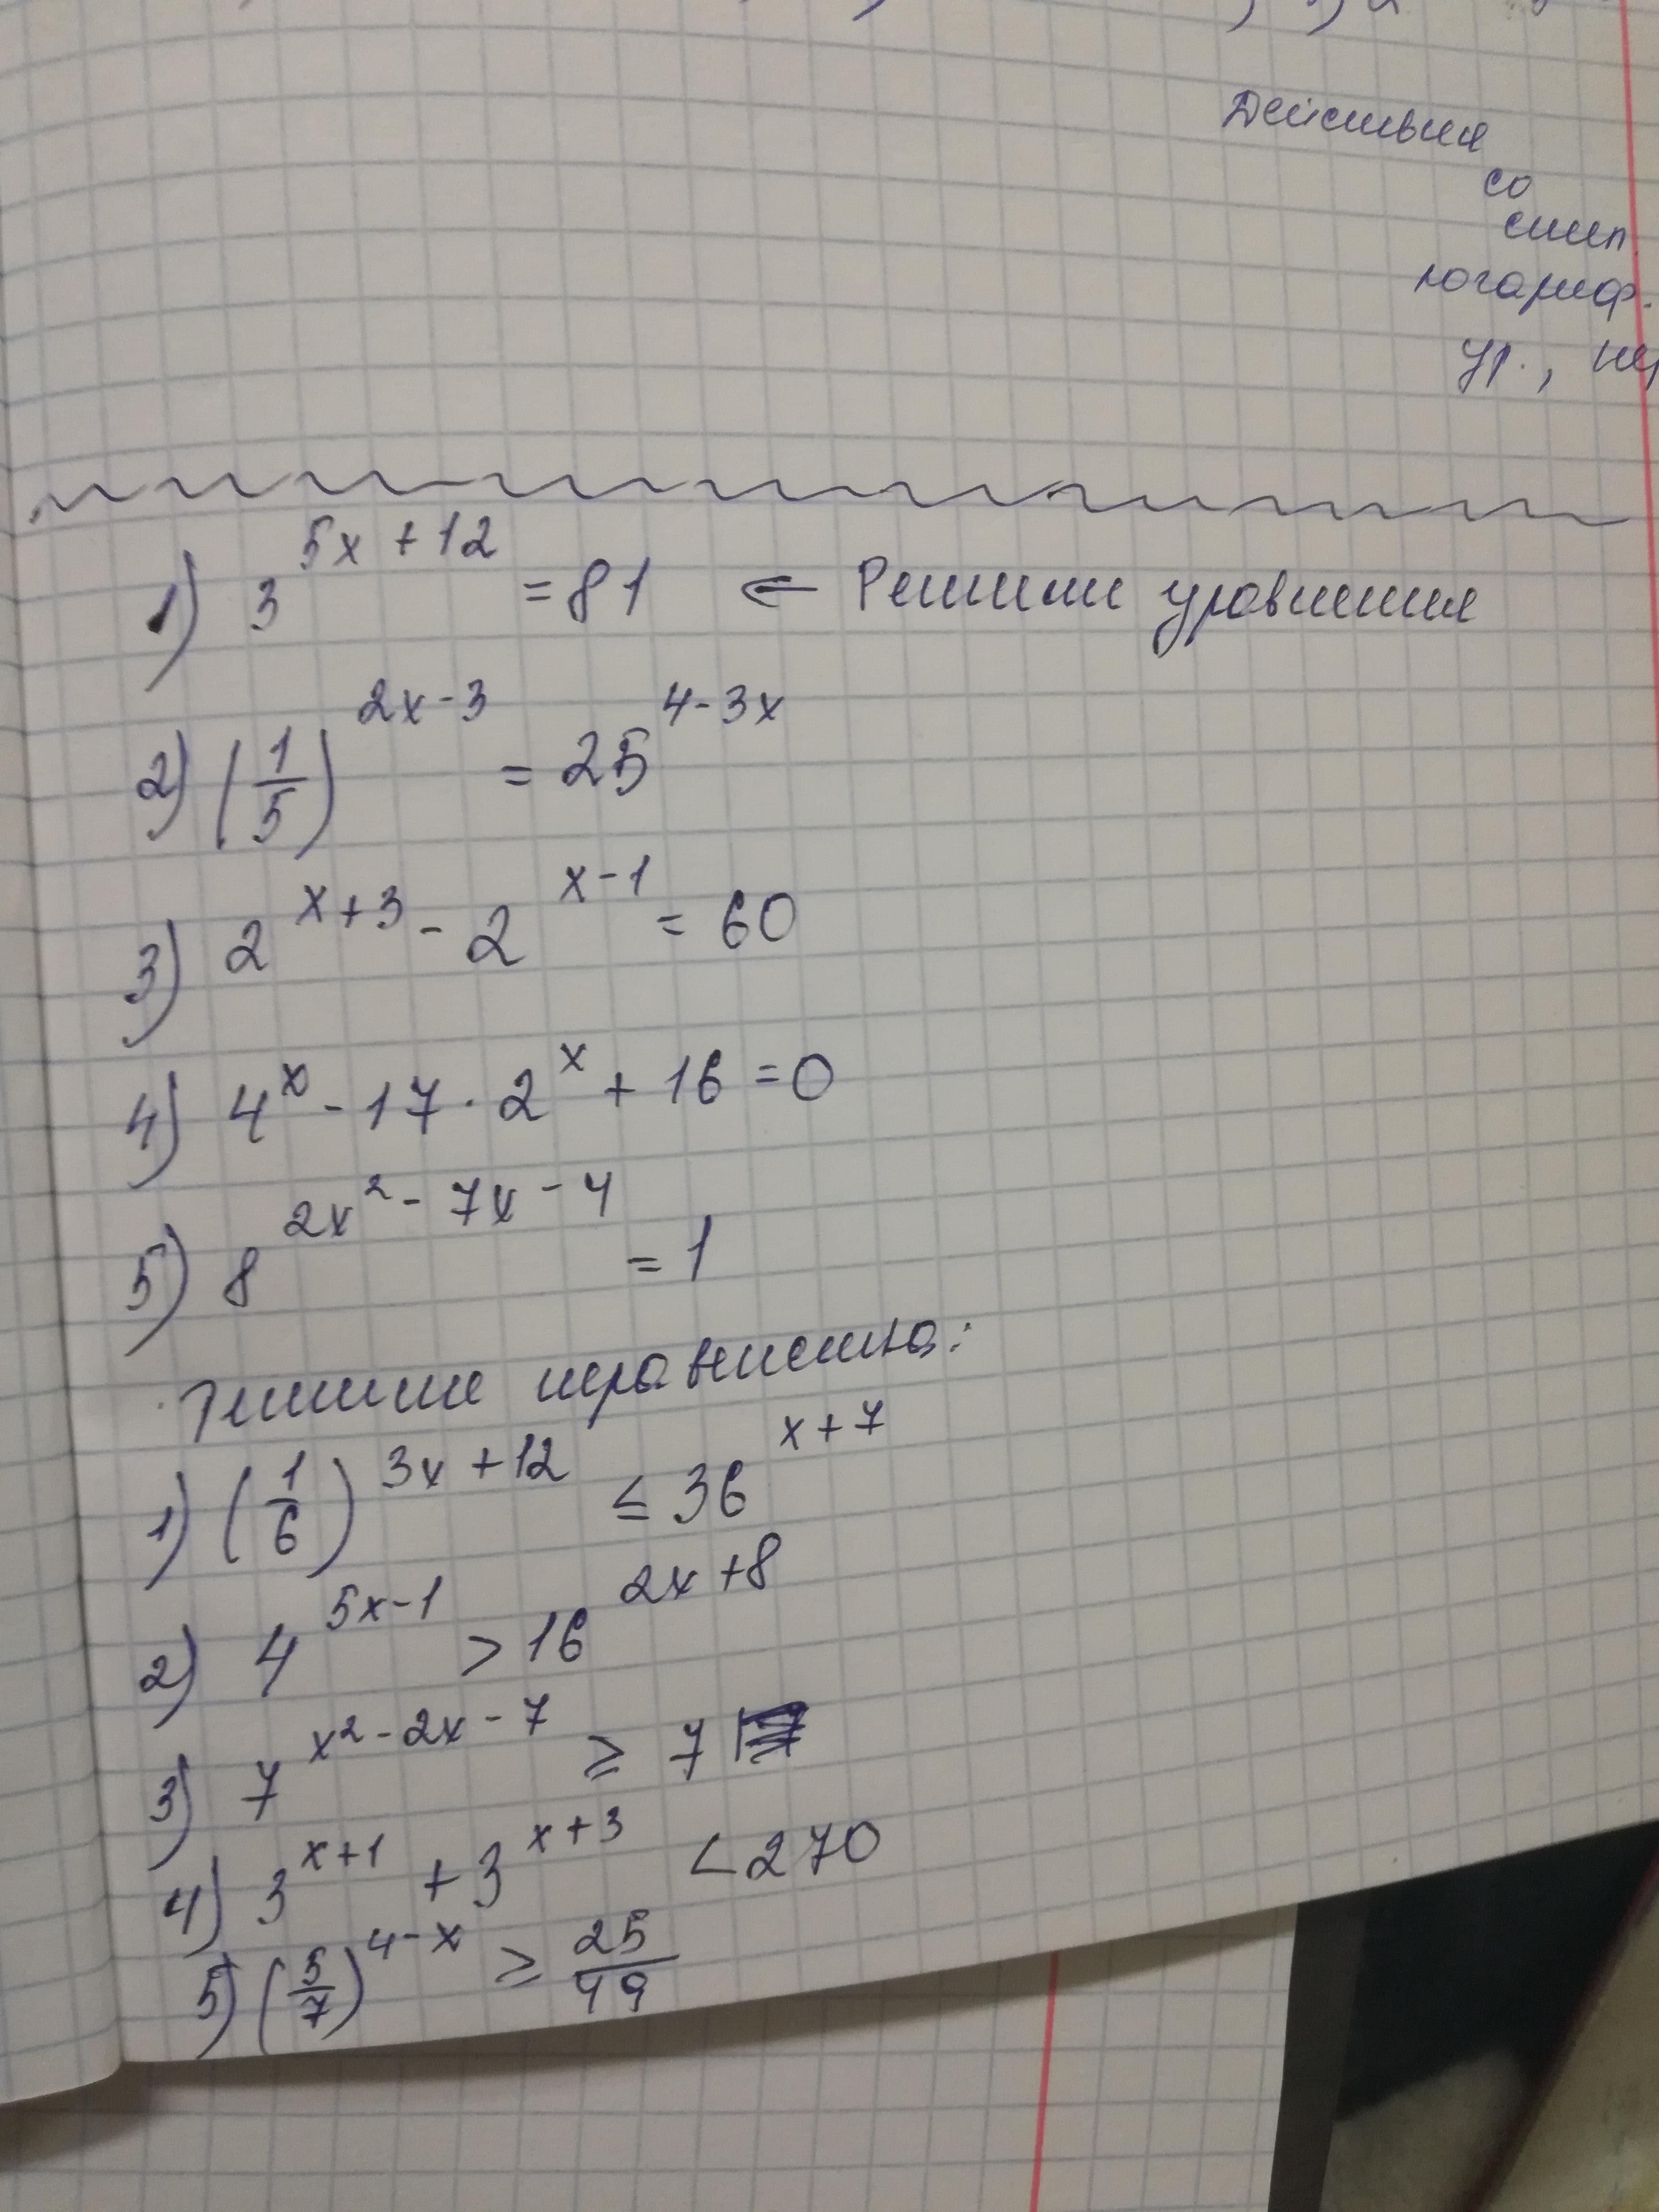 Действия
со
степ.
логариф.
ур.,
1) 3^(5x+12) = 81 ⇐ Решите уравнения
2) (1/5)^(2x-3) = 25^(4-3x)
3) 2^(x+3) - 2^(x-1) = 60
4) 4^x - 17 · 2^x + 16 = 0
5) 8^(2x²-7x-4) = 1
Решите неравенства:
1) (1/6)^(3x+12) ≤ 36^(x+7)
2) 4^(5x-1) > 16^(2x+8)
3) 7^(x²-2x-7) ≥ 7
4) 3^(x+1) + 3^(x+3) < 270
5) (5/7)^(4-x) ≥ 25/49